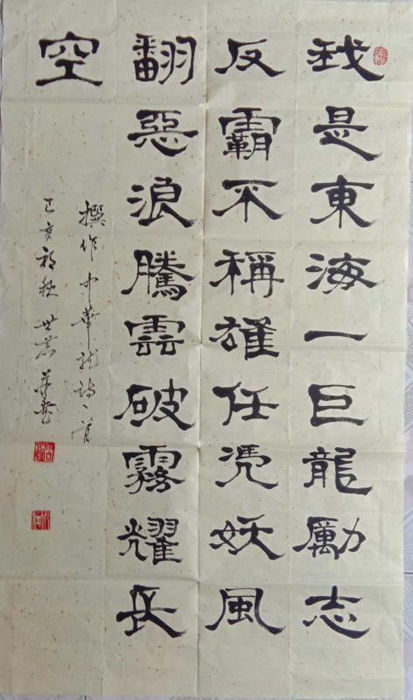 我是東海一巨龍勵志
反霸不稱雄任憑妖風
翻惡浪騰雲破霧耀長
空
撰作中華龍詩一首
己亥初秋